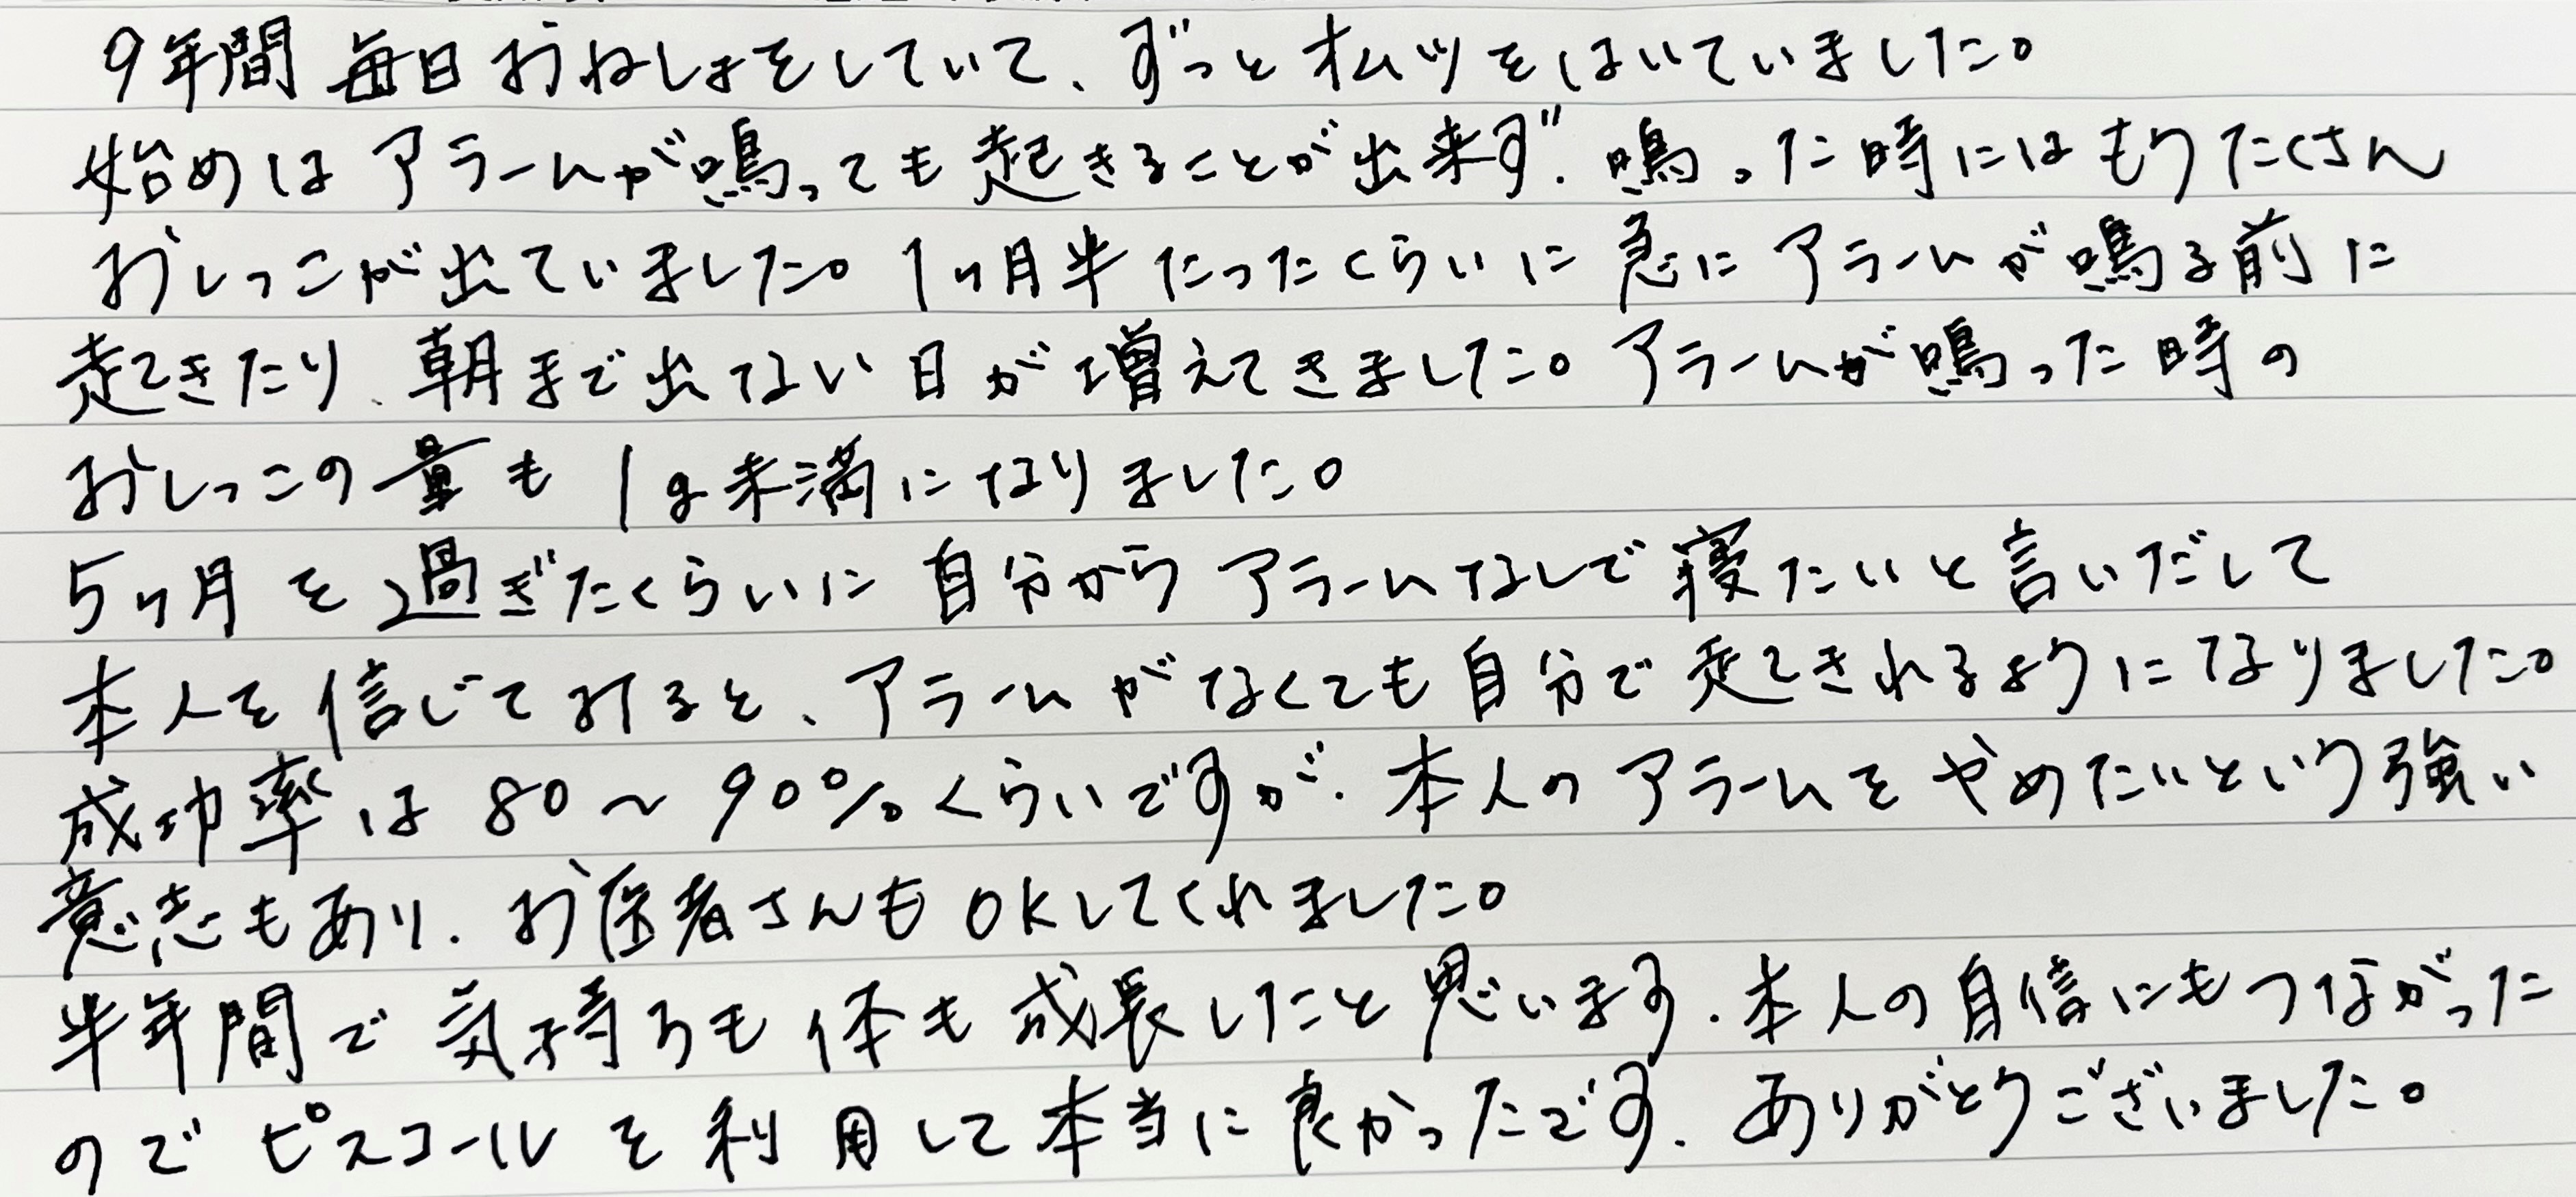 9年間 毎日おねしょをしていて、ずっとオムツをはいていました。
始めは アラームが鳴っても起きることが出来ず、鳴った時にはもうたくさん
おしっこが出ていました。1ヶ月半たったくらいに 急に アラームが鳴る前に
起きたり、朝まで出ない日が増えてきました。アラームが鳴った時の
おしっこの量も 1g未満になりました。
5ヶ月を過ぎたくらいに 自分から アラームなしで寝たいと言いだして
本人を信じてみると、アラームがなくても自分で起きれるようになりました。
成功率は 80〜90%くらいですが、本人のアラームをやめたいという強い
意志もあり、お医者さんもOKしてくれました。
半年間で気持ちも体も成長したと思います。本人の自信にもつながった
のでピスコールを利用して本当に良かったです。ありがとうございました。